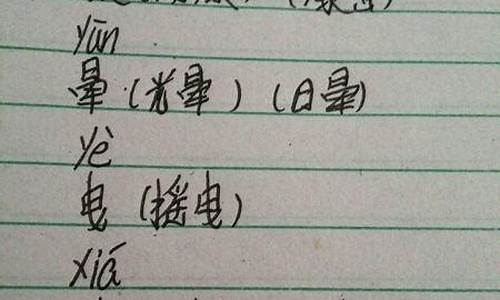 yūn
晕(光晕)(日晕)
yè
曳(摇曳)
xiá